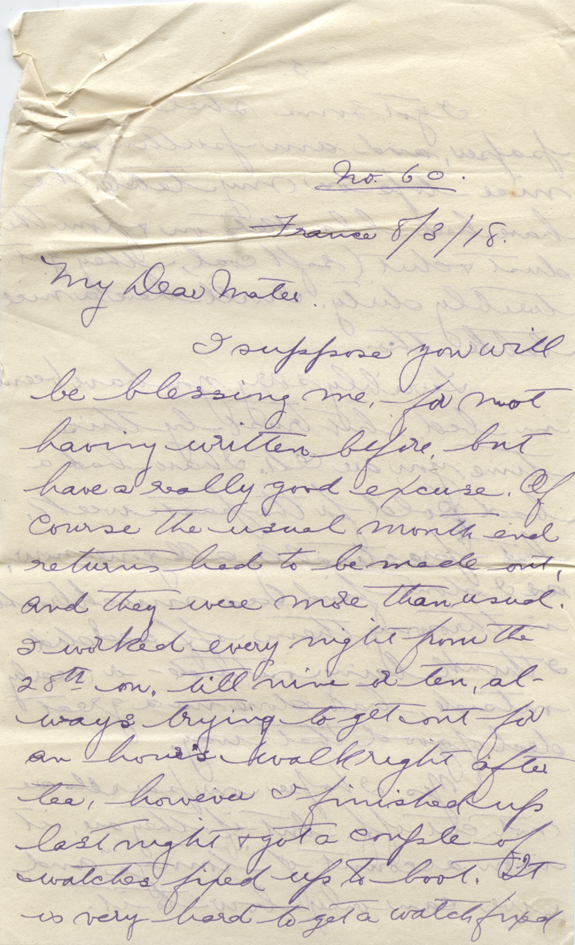 No. 60.
France 8/3/18.
My Dear Mater.
I suppose you will
be blessing me, for not
having written before, but
have a really good excuse. Of
course the usual month end
returns had to be made out,
and they were more than usual.
I worked every night from the
28th on, till nine or ten, al-
ways trying to get out for
an hour's walk right after
tea, however I finished up
last night & got a couple of
watches fixed up to boot. It
is very hard to get a watch fixed